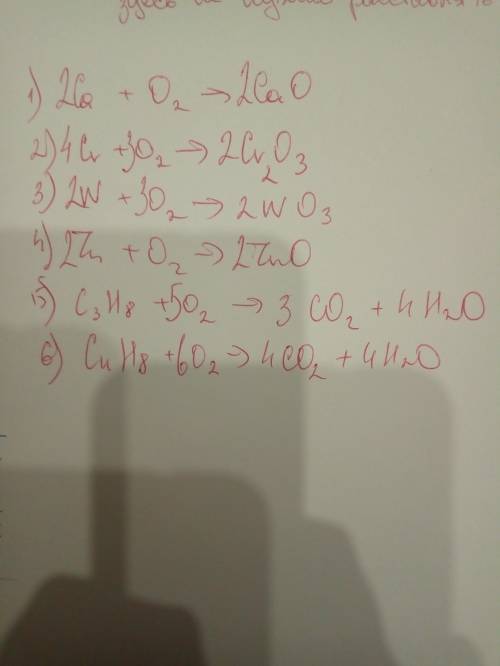 здесь не нужно
1) 2Ca + O₂ → 2CaO
2) 4Cr + 3O₂ → 2Cr₂O₃
3) 2W + 3O₂ → 2WO₃
4) 2Zn + O₂ → 2ZnO
5) C₃H₈ + 5O₂ → 3CO₂ + 4H₂O
6) C₄H₈ + 6O₂ → 4CO₂ + 4H₂O